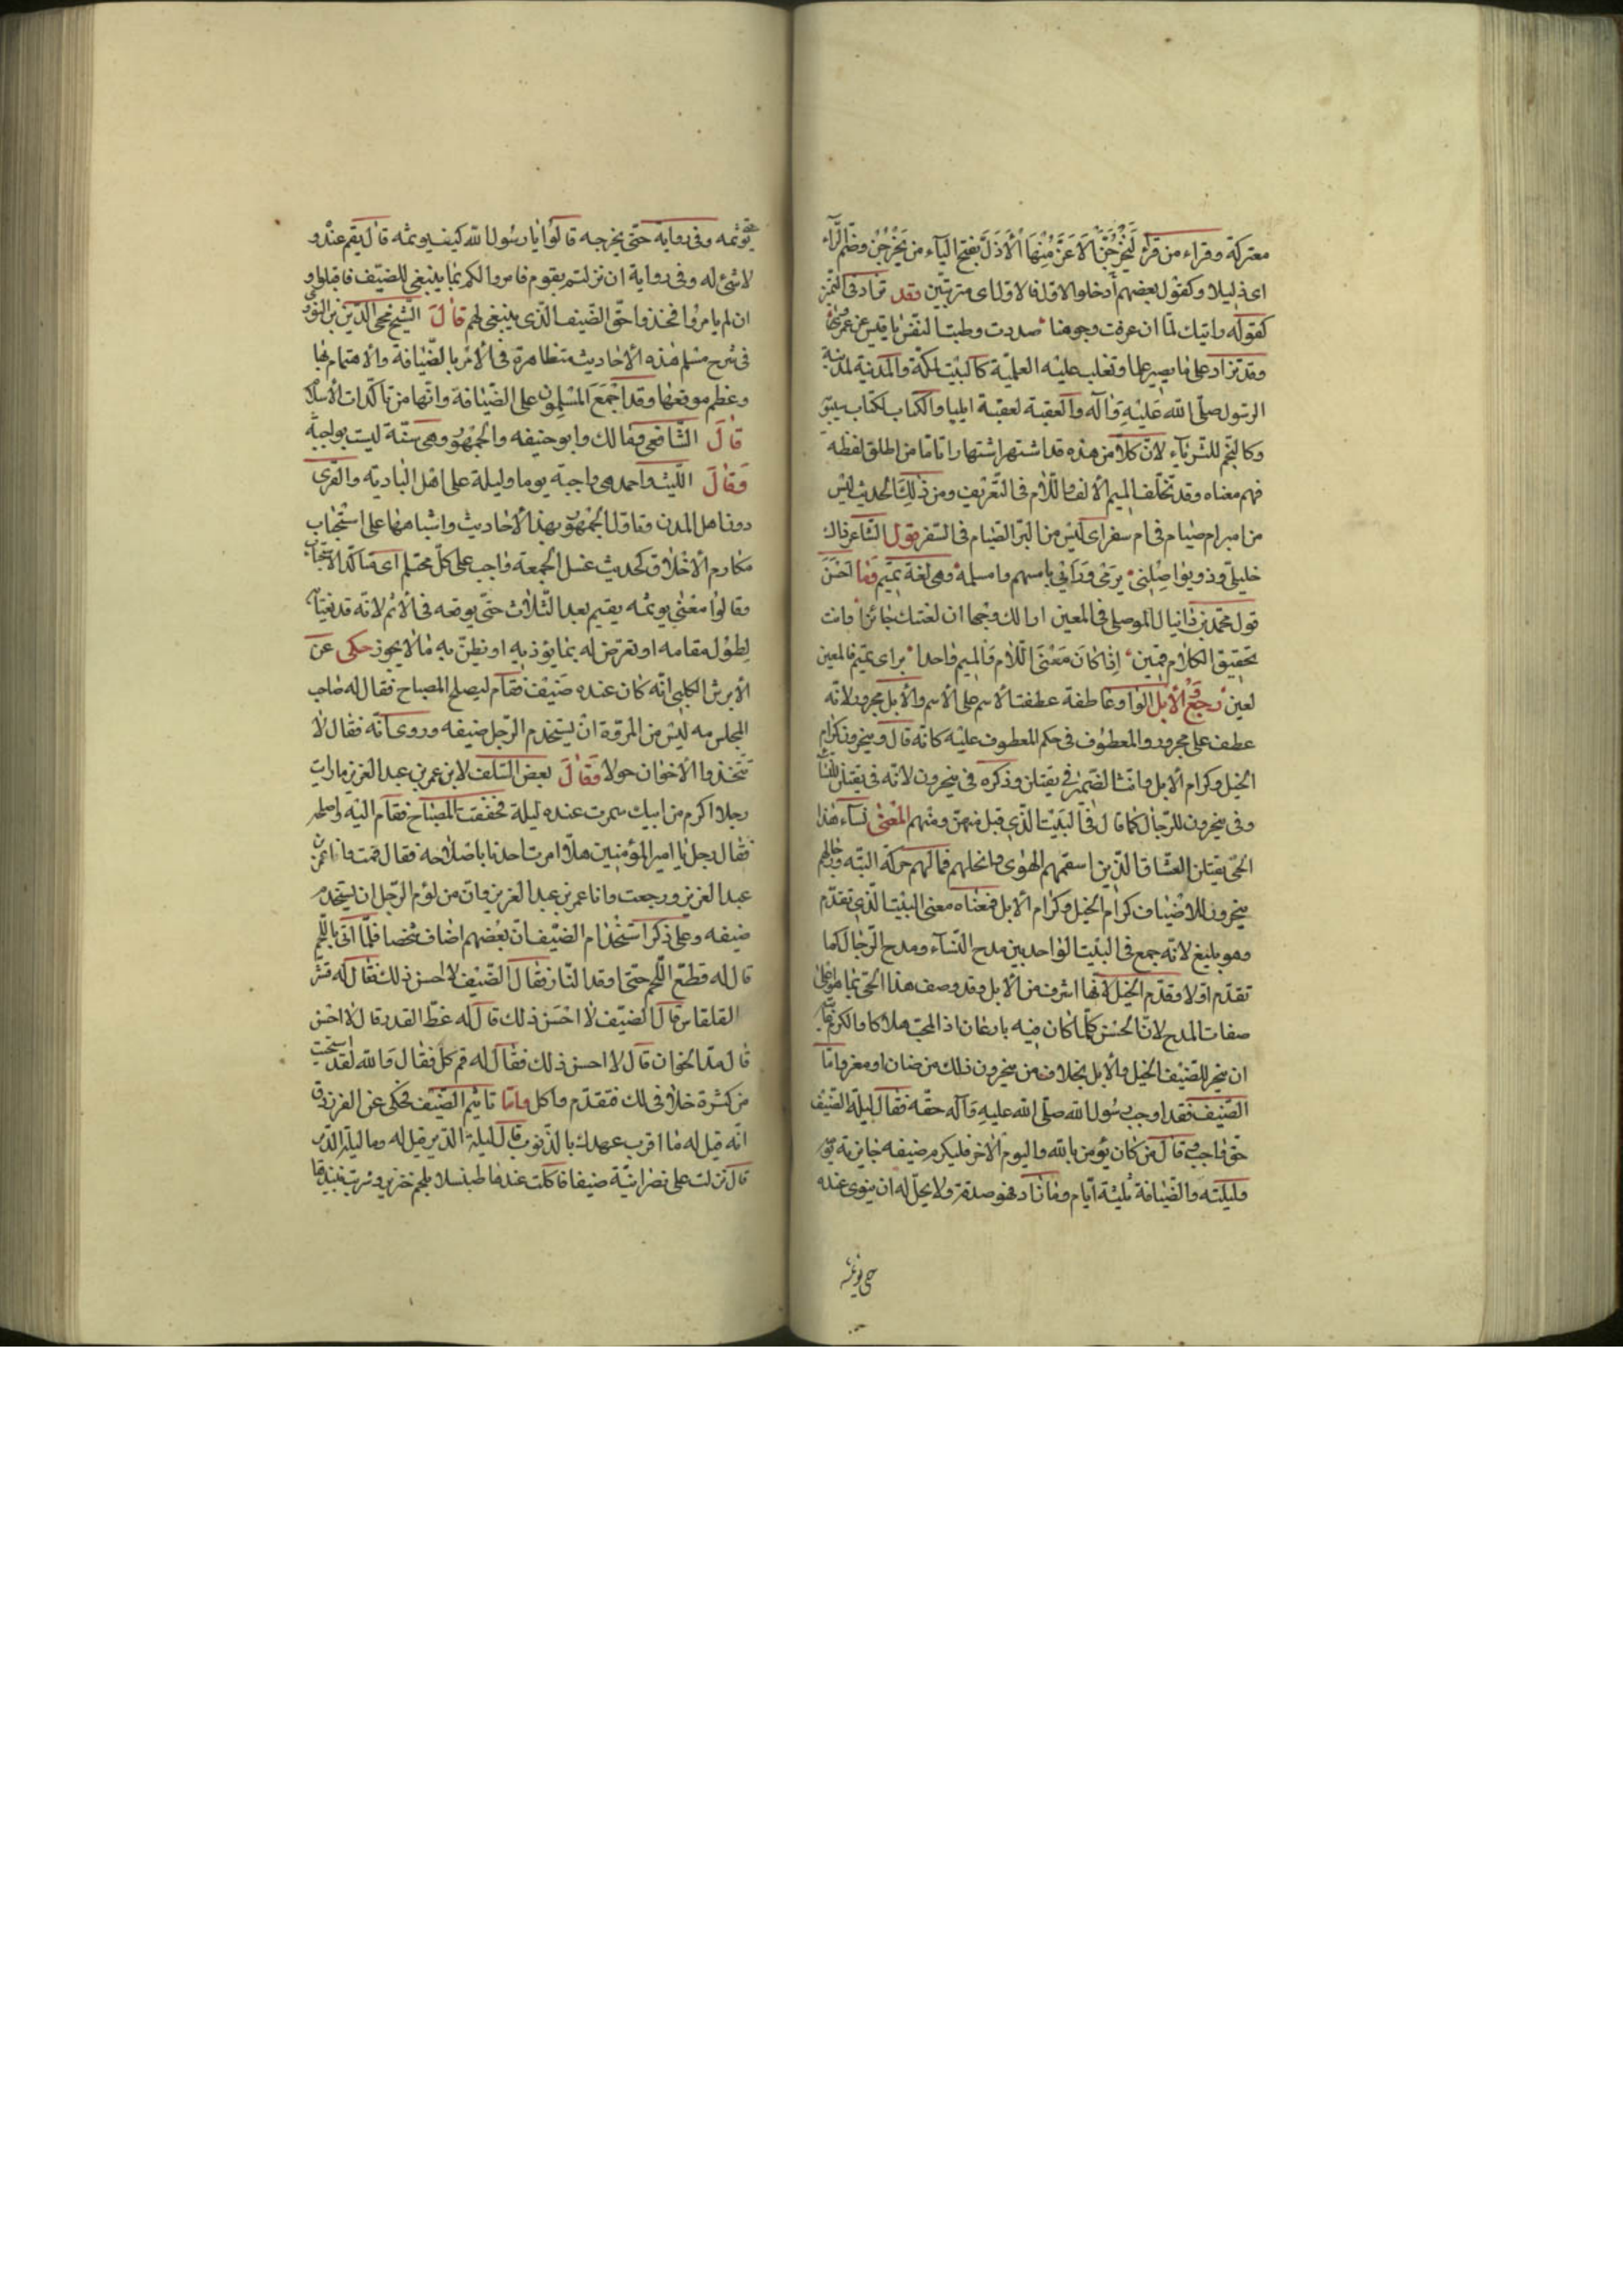 معتركة وقراءة من قرأ ليخرجن الاعز منها الاذل بفتح الياء من يخرجن وضم الراء
اى ذليلا وكقول بعضهم أدخلوا الاول فالاول اى مترتبين وقد تزاد فى التميز
كقوله رايتك لما ان عرفت وجوهنا صددت وطبت النفس يا قيس عن عمرو
وقد تزاد على ما يصير علما وتغلب عليه العلمية كالبيت لمكة والمدينة لمدينة
الرسول صلى الله عليه وآله والعقبة لعقبة ايليا والكتاب لكتاب سيبويه
وكالنجم للثرياء لان كلا من هذه قد اشتهر اشتهارا تاما من اطلق لفظه
فهم معناه وقد تخلف الميم الالف واللام فى التعريف ومن ذلك الحديث ليس
من امبر ام صيام فى ام سفر اى ليس من البر الصيام فى السفر وقول الشاعر ذاك
خليلى وذو يواصلنى يرمى ورائى بامسهم وامسلمة وهى لغة وما احسن
قول محمد بن دانيال الموصلى فى المعين ارى لك وجها ان لغتك جائزا وانت
بتحقيق الكلام قمين اذا كان معنى اللام والميم واحدا براى تميم فالمعين
لعين رجع والابل الواو عاطفة عطفت الاسم على الاسم والابل مجرور لانه
عطف على مجرور والمعطوف فى حكم المعطوف عليه كانه قال وينحرون كرام
الخيل وكرام الابل وانث الضمير فى يقتلن وذكره فى ينحرون لانه فى يقتلن للنساء
وفى ينحرون للرجال كما قال فى البيت الذى قبل منهن ومنهم المعنى نساء هذا
الحى يقتلن العشاق الذين اسقمهم الهوى وانحلهم فما لهم حركة البته ورجالهم
ينحرون للاضياف كرام الخيل وكرام الابل فمعناه معنى البيت الذى تقدم
وهو بليغ لانه جمع فى البيت الواحد بين مدح النساء ومدح الرجال كما
تقدم اولا وقدم الخيل لانها اشرف من الابل وقد وصف هذا الحى بما هو اعلى
صفات المدح لان الحسن كلما كان فيه بارعا كان اذ المحب هلاكا والكرم
ان ينحر للضيف الخيل والابل بخلاف من ينحرون ذلك من ضان او معز واما
الضيف فقد اوجب رسول الله صلى الله عليه وآله حقه فقال ليلة الضيف
حق واجب قال من كان يؤمن بالله واليوم الاخر فليكرم ضيفه جايزته يوم
وليلته والضيافة ثلثة ايام وما زاد فهو صدقة ولا يحل له ان ينوى عنده
حتى يؤثمه
يؤثمه وفى رواية حتى يخرجه قالوا يا رسول الله كيف يوثمه قال يقيم عنده و
لا شئ له وفى رواية ان نزلتم بقوم فامروا لكم بما ينبغى للضيف فاقبلوا و
ان لم يامروا فخذوا حق الضيف الذى ينبغى لهم قال الشيخ محى الدين النووى
فى شرح مسلم هذه الاحاديث متظاهرة فى الامر بالضيافة والاهتمام بها
وعظم موقعها وقد اجمع المسلمون على الضيافة وانها من تاكدات الاسلام
قال الشافعى ومالك وابو حنيفه والجمهور هى سنة ليست بواجبة
وقال الليث واحمد هى واجبة يوما وليلة على اهل البادية والقرى
دون اهل المدن وتاول الجمهور بهذا الاحاديث واشباهها على استحباب
مكارم الاخلاق كحديث غسل الجمعة واجب على كل محتلم اى متاكد الاستحباب
وقالوا معنى يوثمه يقيم بعد الثلاث حتى يوقعه فى الاثم لانه قد يغتابه
لطول مقامه او تعرض له بما يؤذيه او نظن به ما لا يجوز حكى عن
الابرش الكلبى انه كان عنده ضيف فقام ليصلح المصباح فقال له صاحب
المجلس مه ليس من المروة ان يستخدم الرجل ضيفه وروى انه فقال لا
تتخذوا الاخوان خولا وقال بعض السلف لابن عمر بن عبد العزيز ما رايت
رجلا اكرم من ابيك سمرت عنده ليلة فخفت المصباح فقام اليه واصلحه
فقال رجل يا امير المؤمنين هلا امرت احدنا باصلاحه فقال قمت وانا عمر بن
عبد العزيز ورجعت وانا عمر بن عبد العزيز وان من لؤم الرجل ان يستخدم
ضيفه وعلى ذكر استخدام الضيف ان بعضهم اضاف شخصا فلما اتى باللحم
قال له قطع اللحم حتى اوقد النار فقال الضيف لا احسن ذلك فقال له قشر
القلقاس قال الضيف لا احسن ذلك قال له غط القدر قال لا احسن
قال مد الخوان قال لا احسن ذلك فقال له قم كل فقال والله لقد استحيت
من كثرة خلافى لك فتقدم واكل واما تاثيم الضيف فحكى عن الفرزدق
انه قيل له ما اقرب عهدك بالذنوب قال ليلة الدير قيل له وما ليلة الدير
قال نزلت على نصرانية ضيفا فاكلت عندها طبنسلا بلحم خنزير وشربت